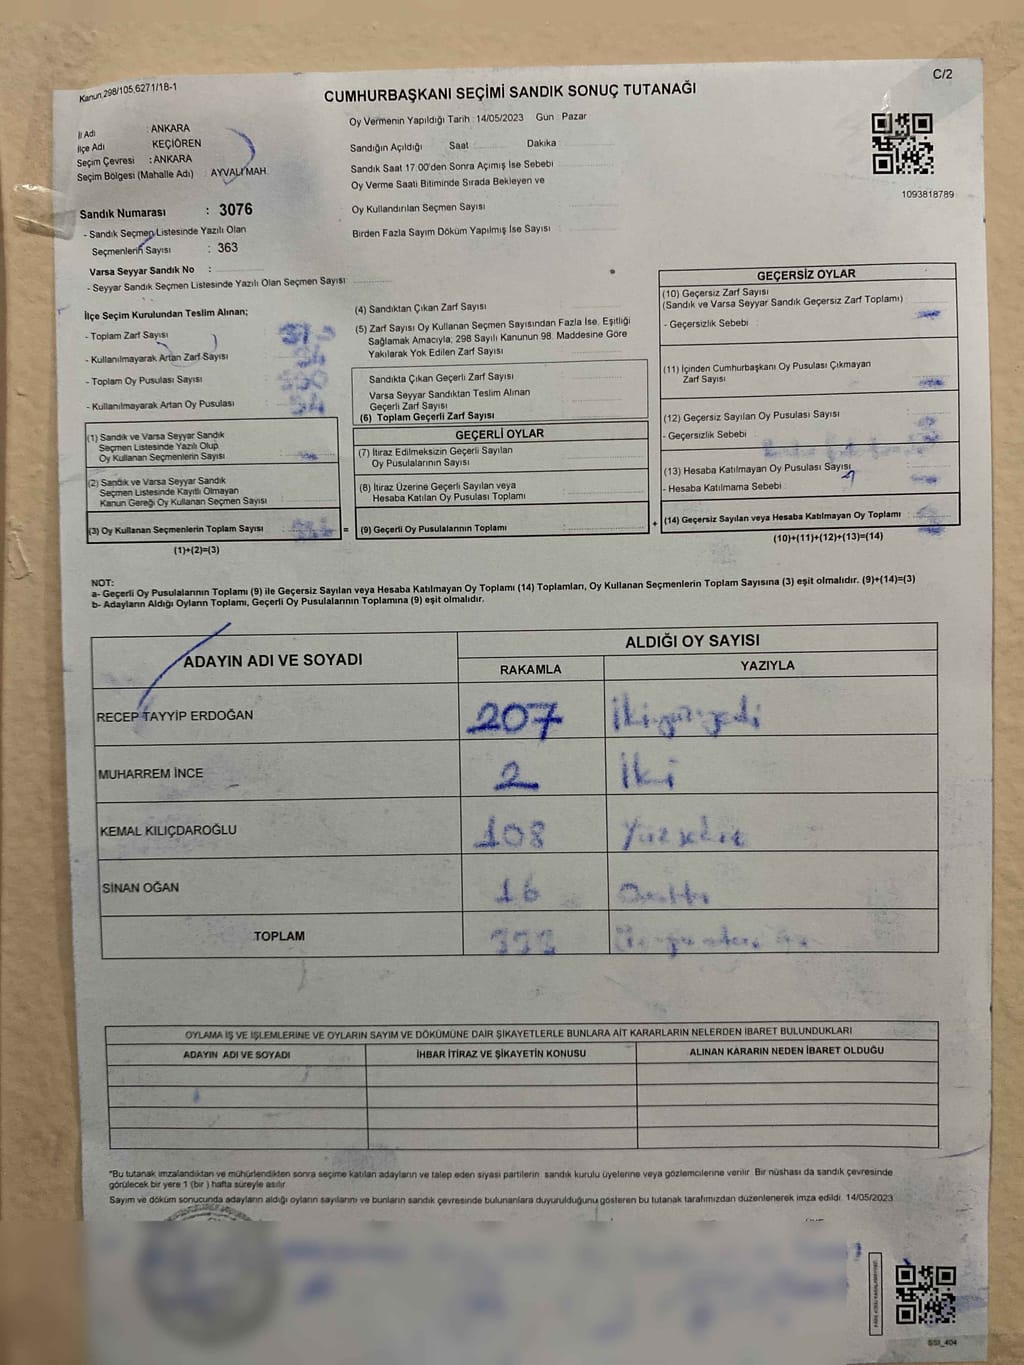 Kanun,298/105,6271/18-1
C/2
CUMHURBAŞKANI SEÇİMİ SANDIK SONUÇ TUTANAĞI
İl Adı : ANKARA
İlçe Adı KEÇİÖREN
Seçim Çevresi : ANKARA
Seçim Bölgesi (Mahalle Adı) : AYVALI MAH.
Sandık Numarası : 3076
- Sandık Seçmen Listesinde Yazılı Olan
Seçmenlerin Sayısı : 363
Varsa Seyyar Sandık No :
- Seyyar Sandık Seçmen Listesinde Yazılı Olan Seçmen Sayısı
Oy Vermenin Yapıldığı Tarih : 14/05/2023 Gün : Pazar
Sandığın Açıldığı Saat Dakika
Sandık Saat 17:00'den Sonra Açımış İse Sebebi
Oy Verme Saati Bitiminde Sırada Bekleyen ve
Oy Kullandırılan Seçmen Sayısı
Birden Fazla Sayım Döküm Yapılmış İse Sayısı
1093818789
İlçe Seçim Kurulundan Teslim Alınan;
- Toplam Zarf Sayısı
- Kullanılmayarak Artan Zarf Sayısı
- Toplam Oy Pusulası Sayısı
- Kullanılmayarak Artan Oy Pusulası
(1) Sandık ve Varsa Seyyar Sandık
Seçmen Listesinde Yazılı Olup
Oy Kullanan Seçmenlerin Sayısı
(2) Sandık ve Varsa Seyyar Sandık
Seçmen Listesinde Kayıtlı Olmayan
Kanun Gereği Oy Kullanan Seçmen Sayısı
(3) Oy Kullanan Seçmenlerin Toplam Sayısı
=
(1)+(2)=(3)
(4) Sandıktan Çıkan Zarf Sayısı
(5) Zarf Sayısı Oy Kullanan Seçmen Sayısından Fazla İse, Eşitliği
Sağlamak Amacıyla; 298 Sayılı Kanunun 98. Maddesine Göre
Yakılarak Yok Edilen Zarf Sayısı
Sandıkta Çıkan Geçerli Zarf Sayısı
Varsa Seyyar Sandıktan Teslim Alınan
Geçerli Zarf Sayısı
(6) Toplam Geçerli Zarf Sayısı
GEÇERLİ OYLAR
(7) İtiraz Edilmeksizin Geçerli Sayılan
Oy Pusulalarının Sayısı
(8) İtiraz Üzerine Geçerli Sayılan veya
Hesaba Katılan Oy Pusulası Toplamı
(9) Geçerli Oy Pusulalarının Toplamı
+
GEÇERSİZ OYLAR
(10) Geçersiz Zarf Sayısı
(Sandık ve Varsa Seyyar Sandık Geçersiz Zarf Toplamı)
- Geçersizlik Sebebi
(11) İçinden Cumhurbaşkanı Oy Pusulası Çıkmayan
Zarf Sayısı
(12) Geçersiz Sayılan Oy Pusulası Sayısı
- Geçersizlik Sebebi
(13) Hesaba Katılmayan Oy Pusulası Sayısı
- Hesaba Katılmama Sebebi
(14) Geçersiz Sayılan veya Hesaba Katılmayan Oy Toplamı
(10)+(11)+(12)+(13)=(14)
NOT:
a- Geçerli Oy Pusulalarının Toplamı (9) ile Geçersiz Sayılan veya Hesaba Katılmayan Oy Toplamı (14) Toplamları, Oy Kullanan Seçmenlerin Toplam Sayısına (3) eşit olmalıdır. (9)+(14)=(3)
b- Adayların Aldığı Oyların Toplamı, Geçerli Oy Pusulalarının Toplamına (9) eşit olmalıdır.
ADAYIN ADI VE SOYADI
ALDIĞI OY SAYISI
RAKAMLA YAZIYLA
RECEP TAYYİP ERDOĞAN 207 İkiyüzyedi
MUHARREM İNCE 2 İki
KEMAL KILIÇDAROĞLU 108 Yüzsekiz
SİNAN OĞAN 16 Onaltı
TOPLAM 333
OYLAMA İŞ VE İŞLEMLERİNE VE OYLARIN SAYIM VE DÖKÜMÜNE DAİR ŞİKAYETLERLE BUNLARA AİT KARARLARIN NELERDEN İBARET BULUNDUKLARI
ADAYIN ADI VE SOYADI İHBAR İTİRAZ VE ŞİKAYETİN KONUSU ALINAN KARARIN NEDEN İBARET OLDUĞU
*Bu tutanak imzalandıktan ve mühürlendikten sonra seçime katılan adayların ve talep eden siyasi partilerin sandık kurulu üyelerine veya gözlemcilerine verilir. Bir nüshası da sandık çevresinde
görülecek bir yere 1 (bir ) hafta süreyle asılır.
Sayım ve döküm sonucunda adayların aldığı oyların sayılarını ve bunların sandık çevresinde bulunanlara duyurulduğunu gösteren bu tutanak tarafımızdan düzenlenerek imza edildi. 14/05/2023
SSI_404